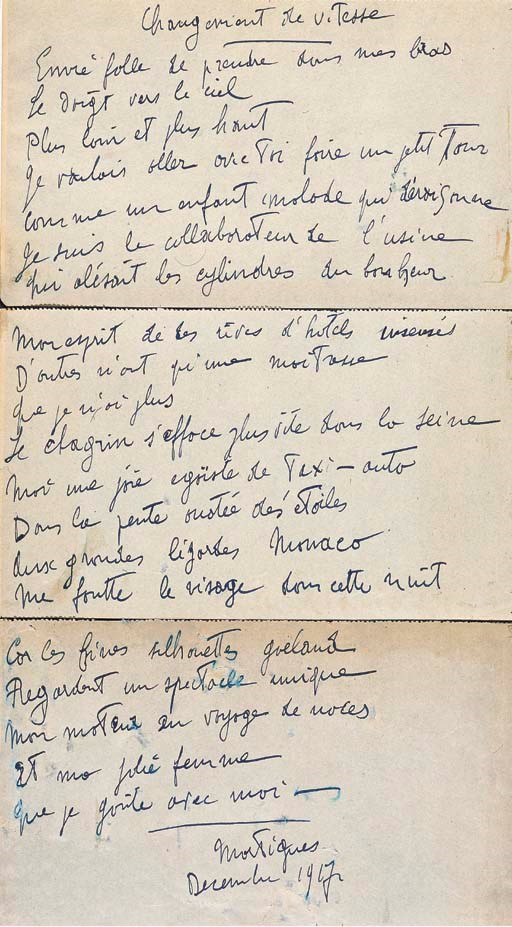 Changement de vitesse
Envie folle de prendre dans mes bras
Le doigt vers le ciel
Plus loin et plus haut
Je voulais aller avec Toi faire un petit Tour
Comme un enfant malade qui
Je suis le collaborateur de l'usine
qui alésait les cylindres du bonheur
Mon esprit de des rêves d'hôtels
D'autres n'ont qu'une
que je n'ai plus
Le chagrin s'efface plus vite dans la Seine
Moi une joie egoïste de Taxi-auto
Dans la pente des étoiles
Monaco
me foutre le visage dans cette nuit
Car les fines silhouettes goëland
Regardent un spectacle unique
Mon moteur en voyage de noces
Et ma jolie femme
que je goûte avec moi —
Martigues
Decembre 1917